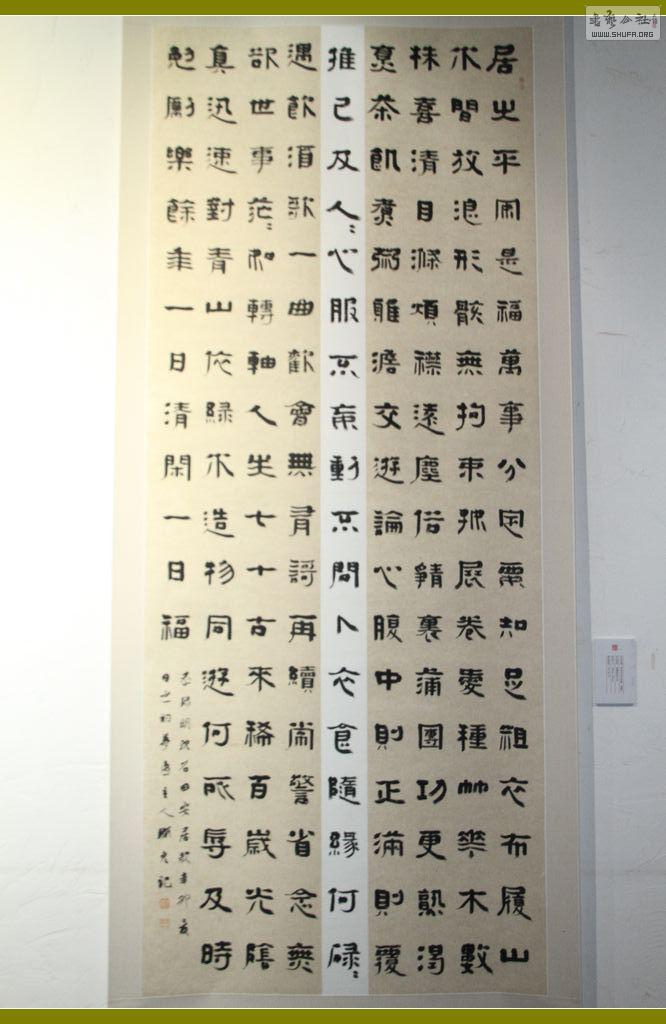 居之平安是福萬事分定要知足粗衣布履山
水間放浪形骸無拘束好展卷愛種竹華木數
株喜清目滌煩襟遠塵俗靜裏蒲團功更熟渴
烹茶飢煮粥雖澹交遊論心腹中則正滿則覆
推己及人〻心服不妄動不問卜衣食隨緣何碌〻
遇飲酒歌一曲歡會無尋謌再續常警省念無
欲世事茫〻如轉軸人生七十古來稀百歲光陰
真迅速對青山依綠水造物同遊何所辱及時
勉勵樂餘年一日清閑一日福
明沈石田安居歌辛卯夏
日主人記
書藝公社
WWW.SHUFA.ORG